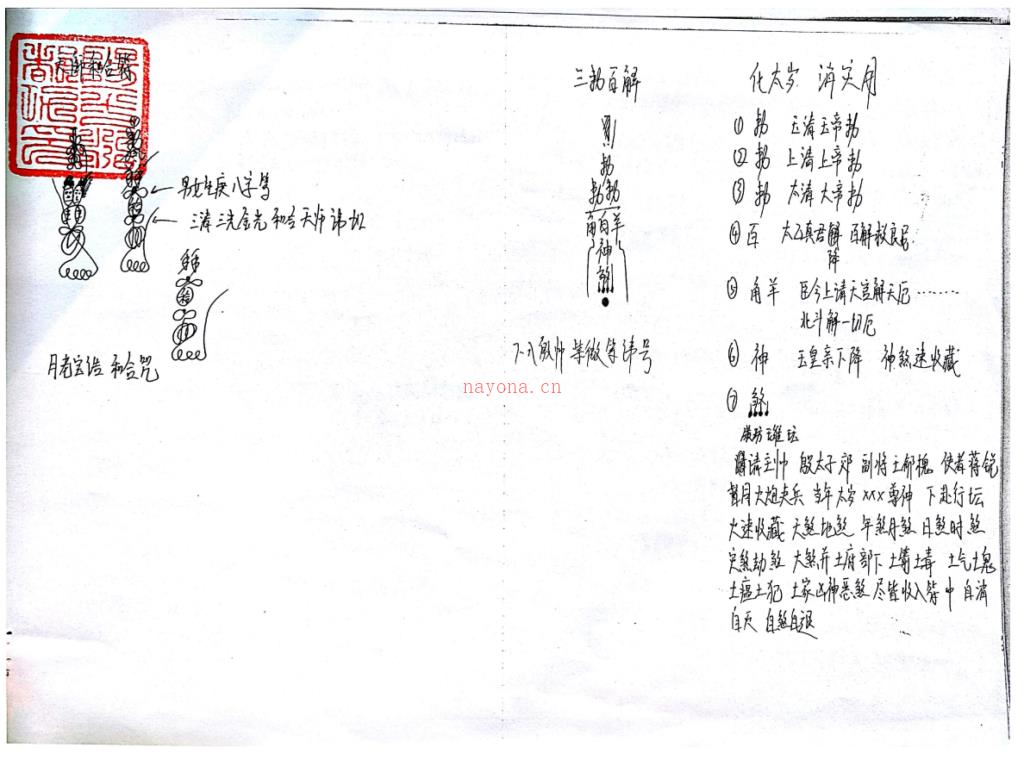 男女生庚八字等
三清三光金光和合天师讳扣
月老宝诰 和合咒
三勅百解
勅
勅勅
角百羊
神
煞
启帅 笔微 讳号
nayona.cn
化太岁 消灾用
① 勅 玉清玉帝勅
② 勅 上清上帝勅
③ 勅 太清大帝勅
④ 百 太乙真君解 百解救良民
降
⑤ 角羊 臣今上请大圣解天厄……
北斗解一切厄
⑥ 神 玉皇亲下降 神煞速收藏
⑦ 煞
请主帅 殷太子郊 副将 使者蒋锐
月大炮夫兵 当年太岁xxx尊神 下赴行坛
火速收藏 天煞地煞 年煞月煞 日煞时煞
灾煞劫煞 大煞并土府部下 土毒 土气土鬼
土瘟土犯 土家凶神恶煞 尽皆收入符中 自消
自灭 自煞自退